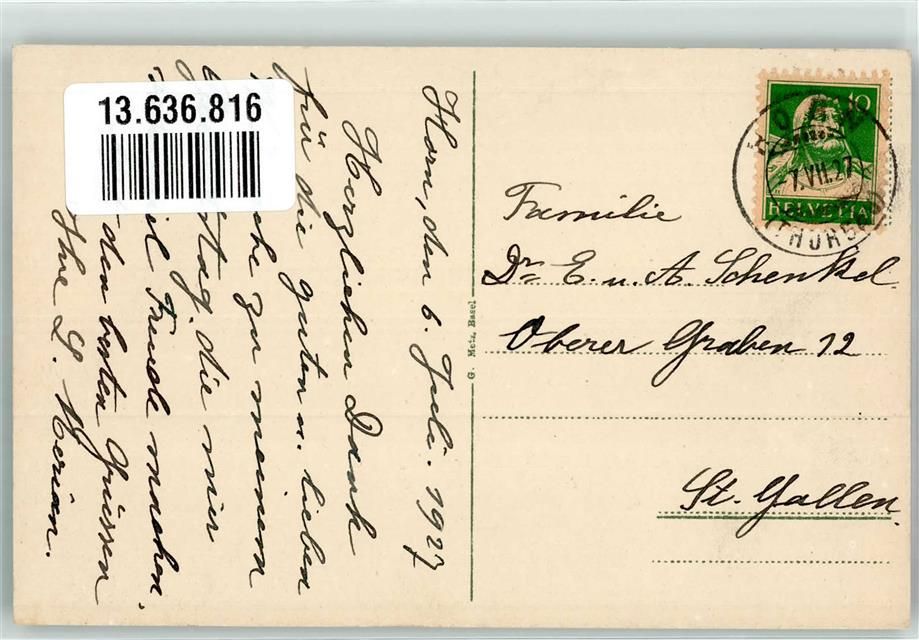 13.636.816
Horn, den 6. Juli. 1927
Herzlichen Dank
für die guten u. lieben
che zu meinem
tag, die mir
il Freude machen.
den besten Grüssen
Ihre L. Merian.
G. Metz, Basel
10
HELVETIA
7.VII.27
(THURGAU)
Familie
Dr. E. u. A. Schenkel
Oberer Graben 12
St. Gallen